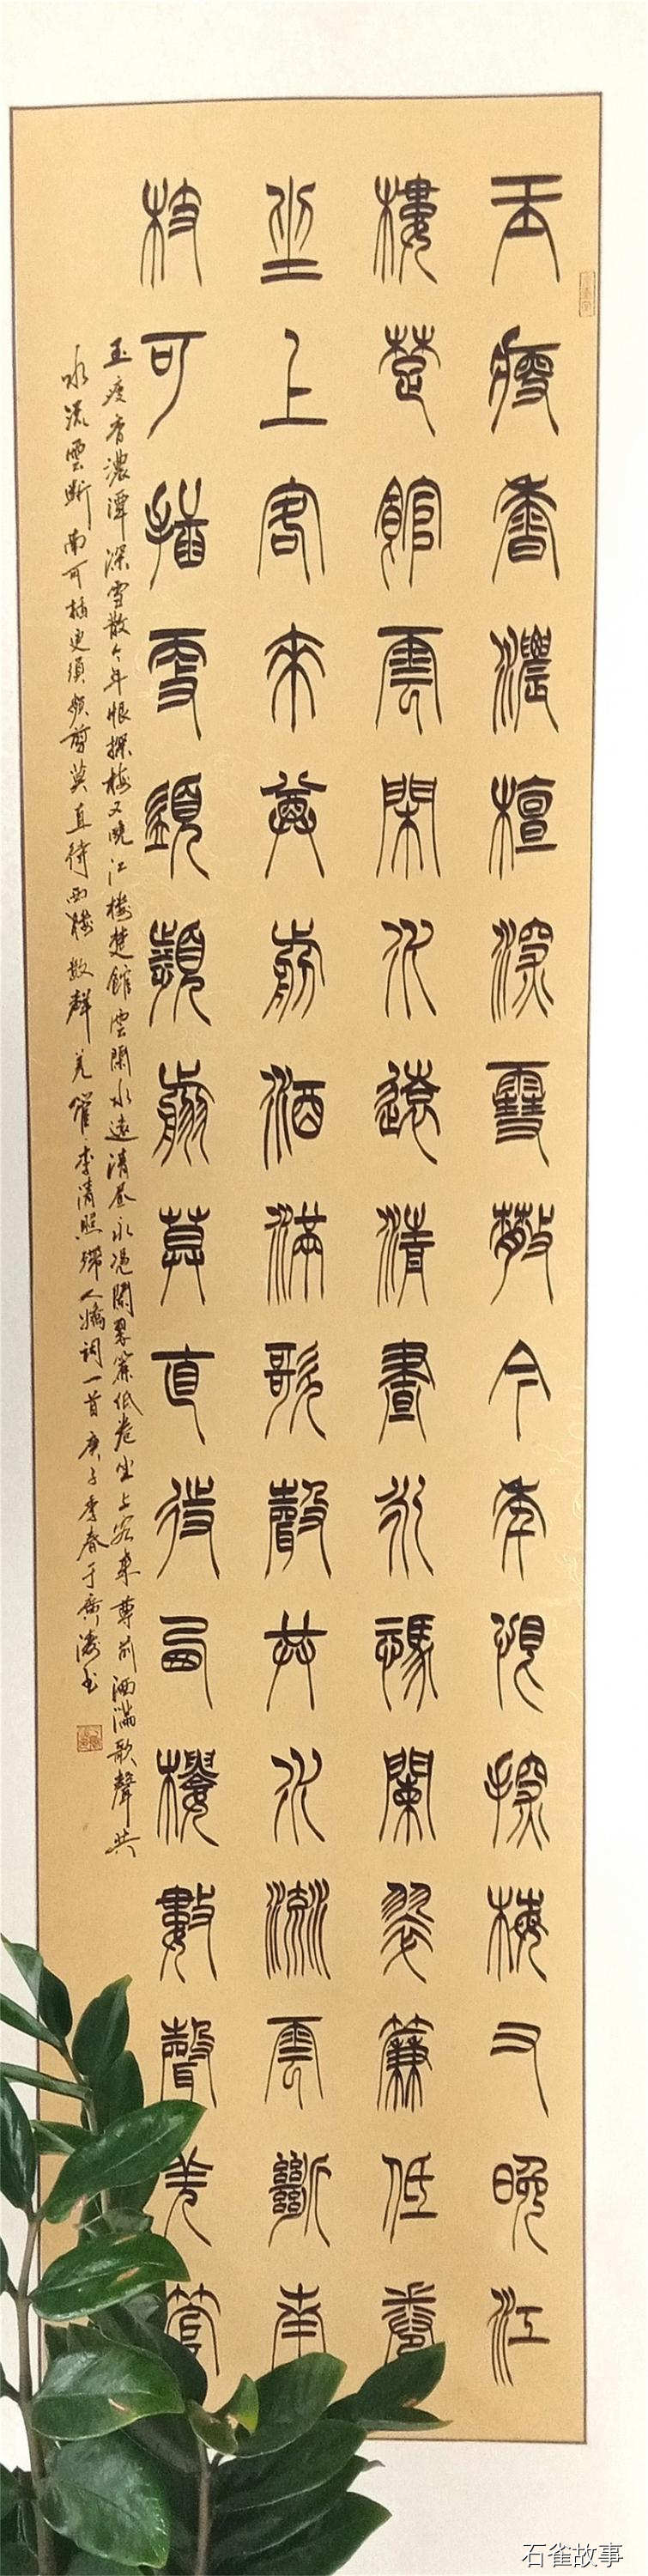 玉瘦香濃檀深雪散今年恨探梅又晚江
樓楚館雲閑水遠清晝永憑闌翠簾低卷
坐上客來尊前酒滿歌聲共水流雲斷南
枝可插更須頻剪莫直待西樓數聲羌管
玉瘦香濃潭深雪散今年恨探梅又晚江樓楚館雲閑水遠清昼永憑闌翠簾低卷坐上客來尊前酒滿歌聲共
水流雲斷南可插更須頻剪莫直待西樓數聲羌管李清照殢人嬌詞一首庚子季春于廣濤书
石雀故事